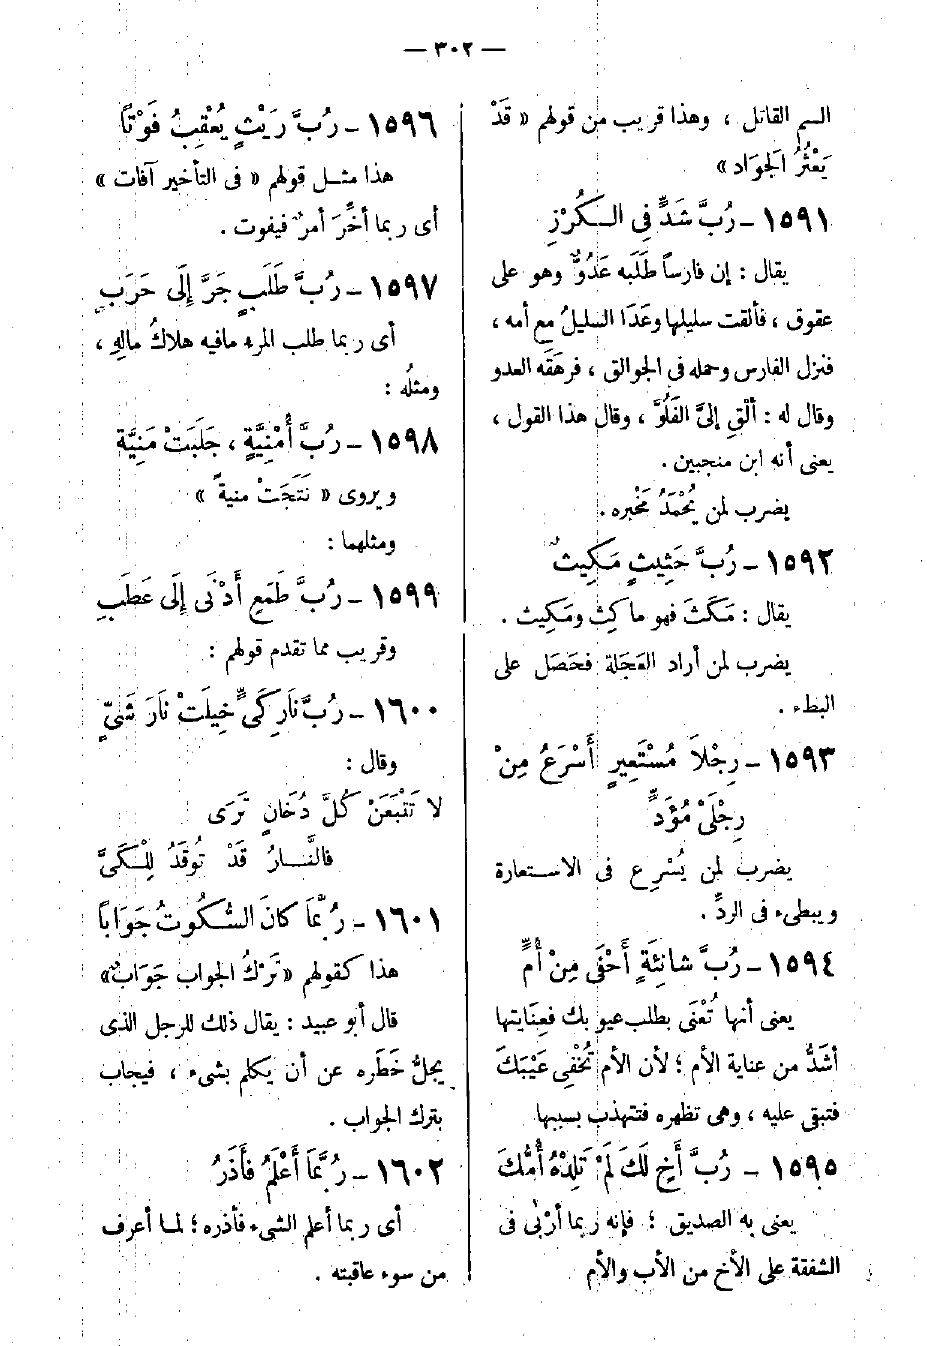 — ٣٠٢ —
السم القاتل ، وهذا قريب من قولهم « قَدْ
يَعْثُرُ الْجَوَاد »
١٥٩١ – رُبَّ شَدٍّ فِي الْكُرْزِ
يقال : إن فارساً طَلَبَه عَدُوٌّ وهو على
عقوق ، فألقت سليلها وعَدَا السليلُ مع أمه ،
فنزل الفارس وحمله فى الجوالق ، فرهَقَه العدو
وقال له : ألْقِ إلىَّ الفَلُوَّ ، وقال هذا القول ،
يعنى أنه ابن منجبين .
يضرب لمن يُحْمَدُ مَخْبره .
١٥٩٢ – رُبَّ حَثِيثٍ مَكِيثٌ
يقال : مَكَثَ فهو ماكِث ومَكِيث .
يضرب لمن أراد العَجَلة فحَصَل على
البطء .
١٥٩٣ – رِجْلاَ مُسْتَعِيرٍ أَسْرَعُ مِنْ
رِجْلَىْ مُؤَدٍّ
يضرب لمن يُسْرِع فى الاستعارة
ويبطىء فى الردِّ .
١٥٩٤ – رُبَّ شانِئَةٍ أَحْفَى مِنْ أُمٍّ
يعنى أنها تُعْنَى بطلب عيوبك فعِنَايتها
أشَدُّ من عناية الأم ؛ لأن الأم تُخْفِى عَيْبَكَ
فتبقى عليه ، وهى تظهره فتتهذب بسببها
١٥٩٥ – رُبَّ أَخٍ لَكَ لَمْ تَلِدْهُ أُمُّكَ
يعنى به الصديق ؛ فإنه ربما أرْبٰى فى
الشفقة على الأخ من الأب والأم
١٥٩٦ – رُبَّ رَيْثٍ يُعْقِبُ فَوْتاً
هذا مثل قولهم « فى التأخير آفات »
أى ربما أخِّرَ أمرٌ فيفوت .
١٥٩٧ – رُبَّ طَلَبٍ جَرَّ إِلَى حَرَبٍ
أى ربما طلب المرء مافيه هلاكُ مالِهِ ،
ومثلُه :
١٥٩٨ – رُبَّ أُمْنِيَّةٍ ، جَلَبَتْ مَنِيَّة
ويروى « نَتَجَتْ منيةً »
ومثلهما :
١٥٩٩ – رُبَّ طَمَعٍ أَدْنَى إِلَى عَطَبٍ
وقريب مما تقدم قولهم :
١٦٠٠ – رُبَّ نَارِ كَىٍّ خِيلَتْ نَارَ شَىٍّ
وقال :
لا تَتْبَعَنْ كُلَّ دُخَانٍ تَرَى
فالنَّارُ قَدْ تُوقَدُ لِلْكَىَّ
١٦٠١ – رُبَّمَا كانَ السُّكُوتُ جَوَاباً
هذا كقولهم « تَرْكُ الجواب جَوَابٌ »
قال أبو عبيد : يقال ذلك للرجل الذى
يجلُّ خَطَره عن أن يكلم بشىء ، فيجاب
بترك الجواب .
١٦٠٢ – رُبَّمَا أَعْلَمُ فَأَذَرُ
أى ربما أعلم الشىء فأذره ؛ لما أعرف
من سوء عاقبته .